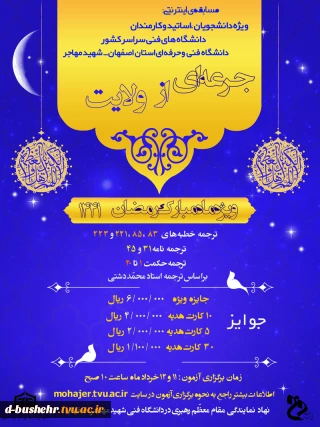 مسابقه‌ی اینترنتی:
ویژه دانشجویان، اساتید و کارمندان
دانشگاه های فنی سراسر کشور
دانشگاه فنی و حرفه ای استان اصفهان- شهید مهاجر
جرعه‌ای از ولایت
ویژه ماه مبارک رمضان ۱۴۴۱
ترجمه خطبه های ۸۳، ۸۵، ۲۲۱ و ۲۲۳
ترجمه نامه ۳۱ و ۴۵
ترجمه حکمت ۱ تا ۲۰
براساس ترجمه استاد محمد دشتی
جوایز
جایزه ویژه ۶/۰۰۰/۰۰۰ ریال
۱۰ کارت هدیه ۴/۰۰۰/۰۰۰ ریال
۵ کارت هدیه ۲/۰۰۰/۰۰۰ ریال
۳۰ کارت هدیه ۱/۱۰۰/۰۰۰ ریال
زمان برگزاری آزمون: ۱۱ و ۱۲ خرداد ماه ساعت ۱۰ صبح
اطلاعات بیشتر راجع به نحوه برگزاری آزمون در سایت mohajer.tvu.ac.ir
نهاد نمایندگی مقام معظم رهبری در دانشگاه فنی شهید
d-bushehr.tvu.ac.ir